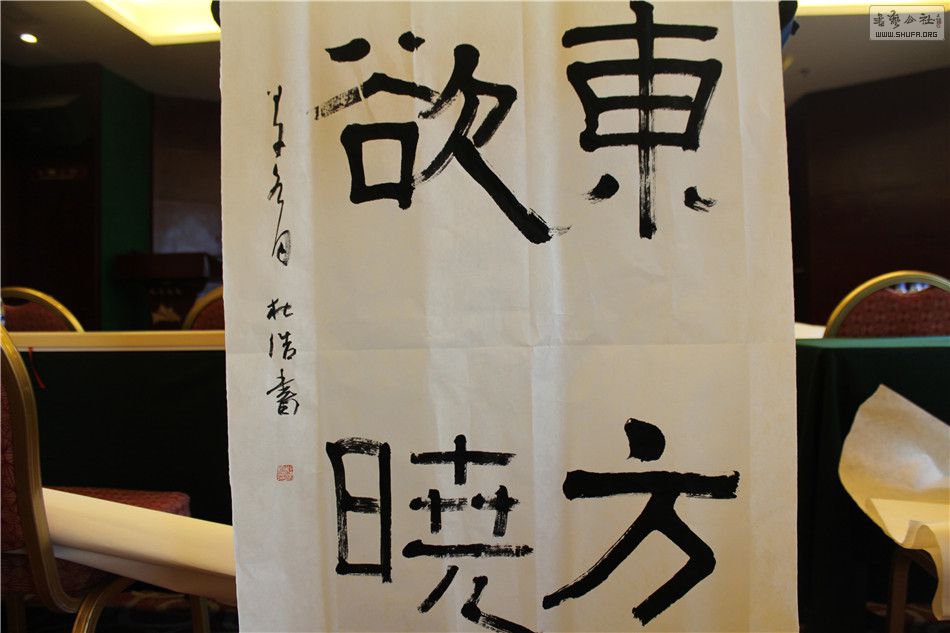 東方
欲曉
杜浩書
書藝公社
WWW.SHUFA.ORG